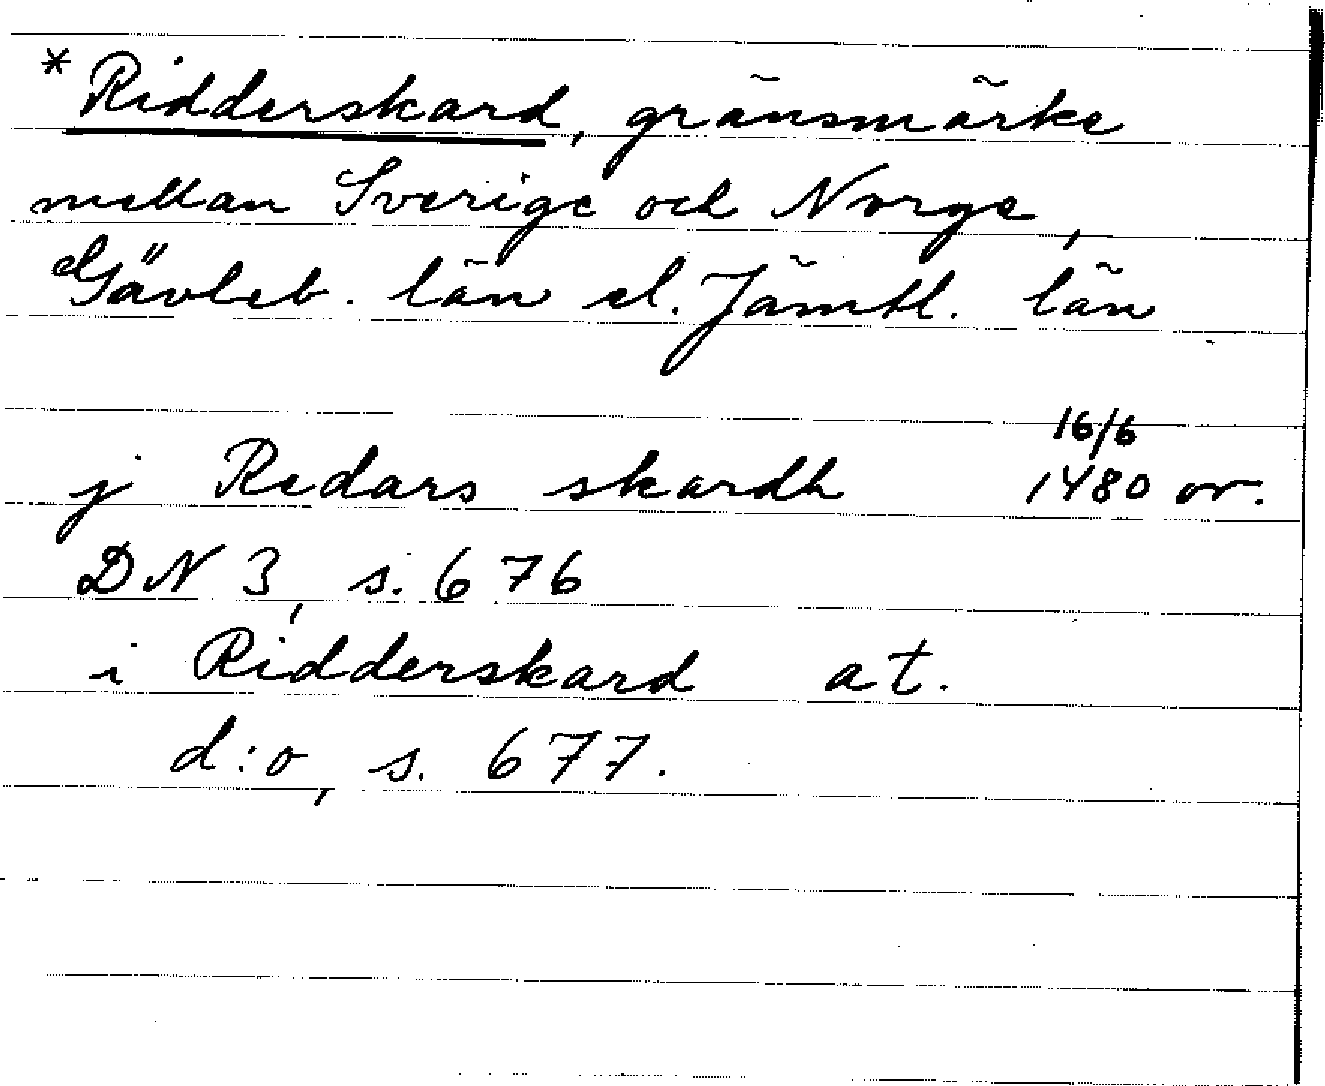 * Ridderskard, gränsmärke
mellan Sverige och Norge,
Gävleb. län el. Jämtl. län
16/6
j Redars skardh 1480 or.
DN 3, s. 676
i Ridderskard at.
d:o, s. 677.